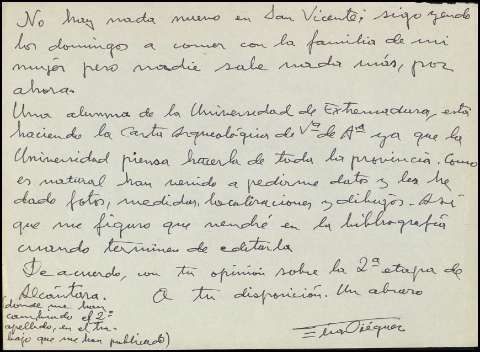 No hay nada nuevo en San Vicente; sigo yendo
los domingos a comer con la familia de mi
mujer pero nadie sabe nada más, por
ahora.
Una alumna de la Universidad de Extremadura, está
haciendo la Carta Arqueológica de Vª de Aª ya que la
Universidad piensa hacerla de toda la provincia. Como
es natural han venido a pedirme datos y les he
dado fotos, medidas, localizaciones y dibujos. Así
que me figuro que vendré en la bibliografía
cuando terminen de editarla
De acuerdo, con tu opinión sobre la 2ª etapa de
Alcántara. A tu disposición. Un abrazo
(donde me han
cambiado el 2º
apellido, en el tra-
bajo que me han publicado)